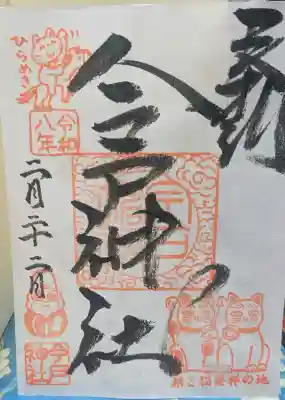 奉拝
今戸神社
ひらめき
令和
八年
二月二十二日
招き猫発祥の地
今戸
神社